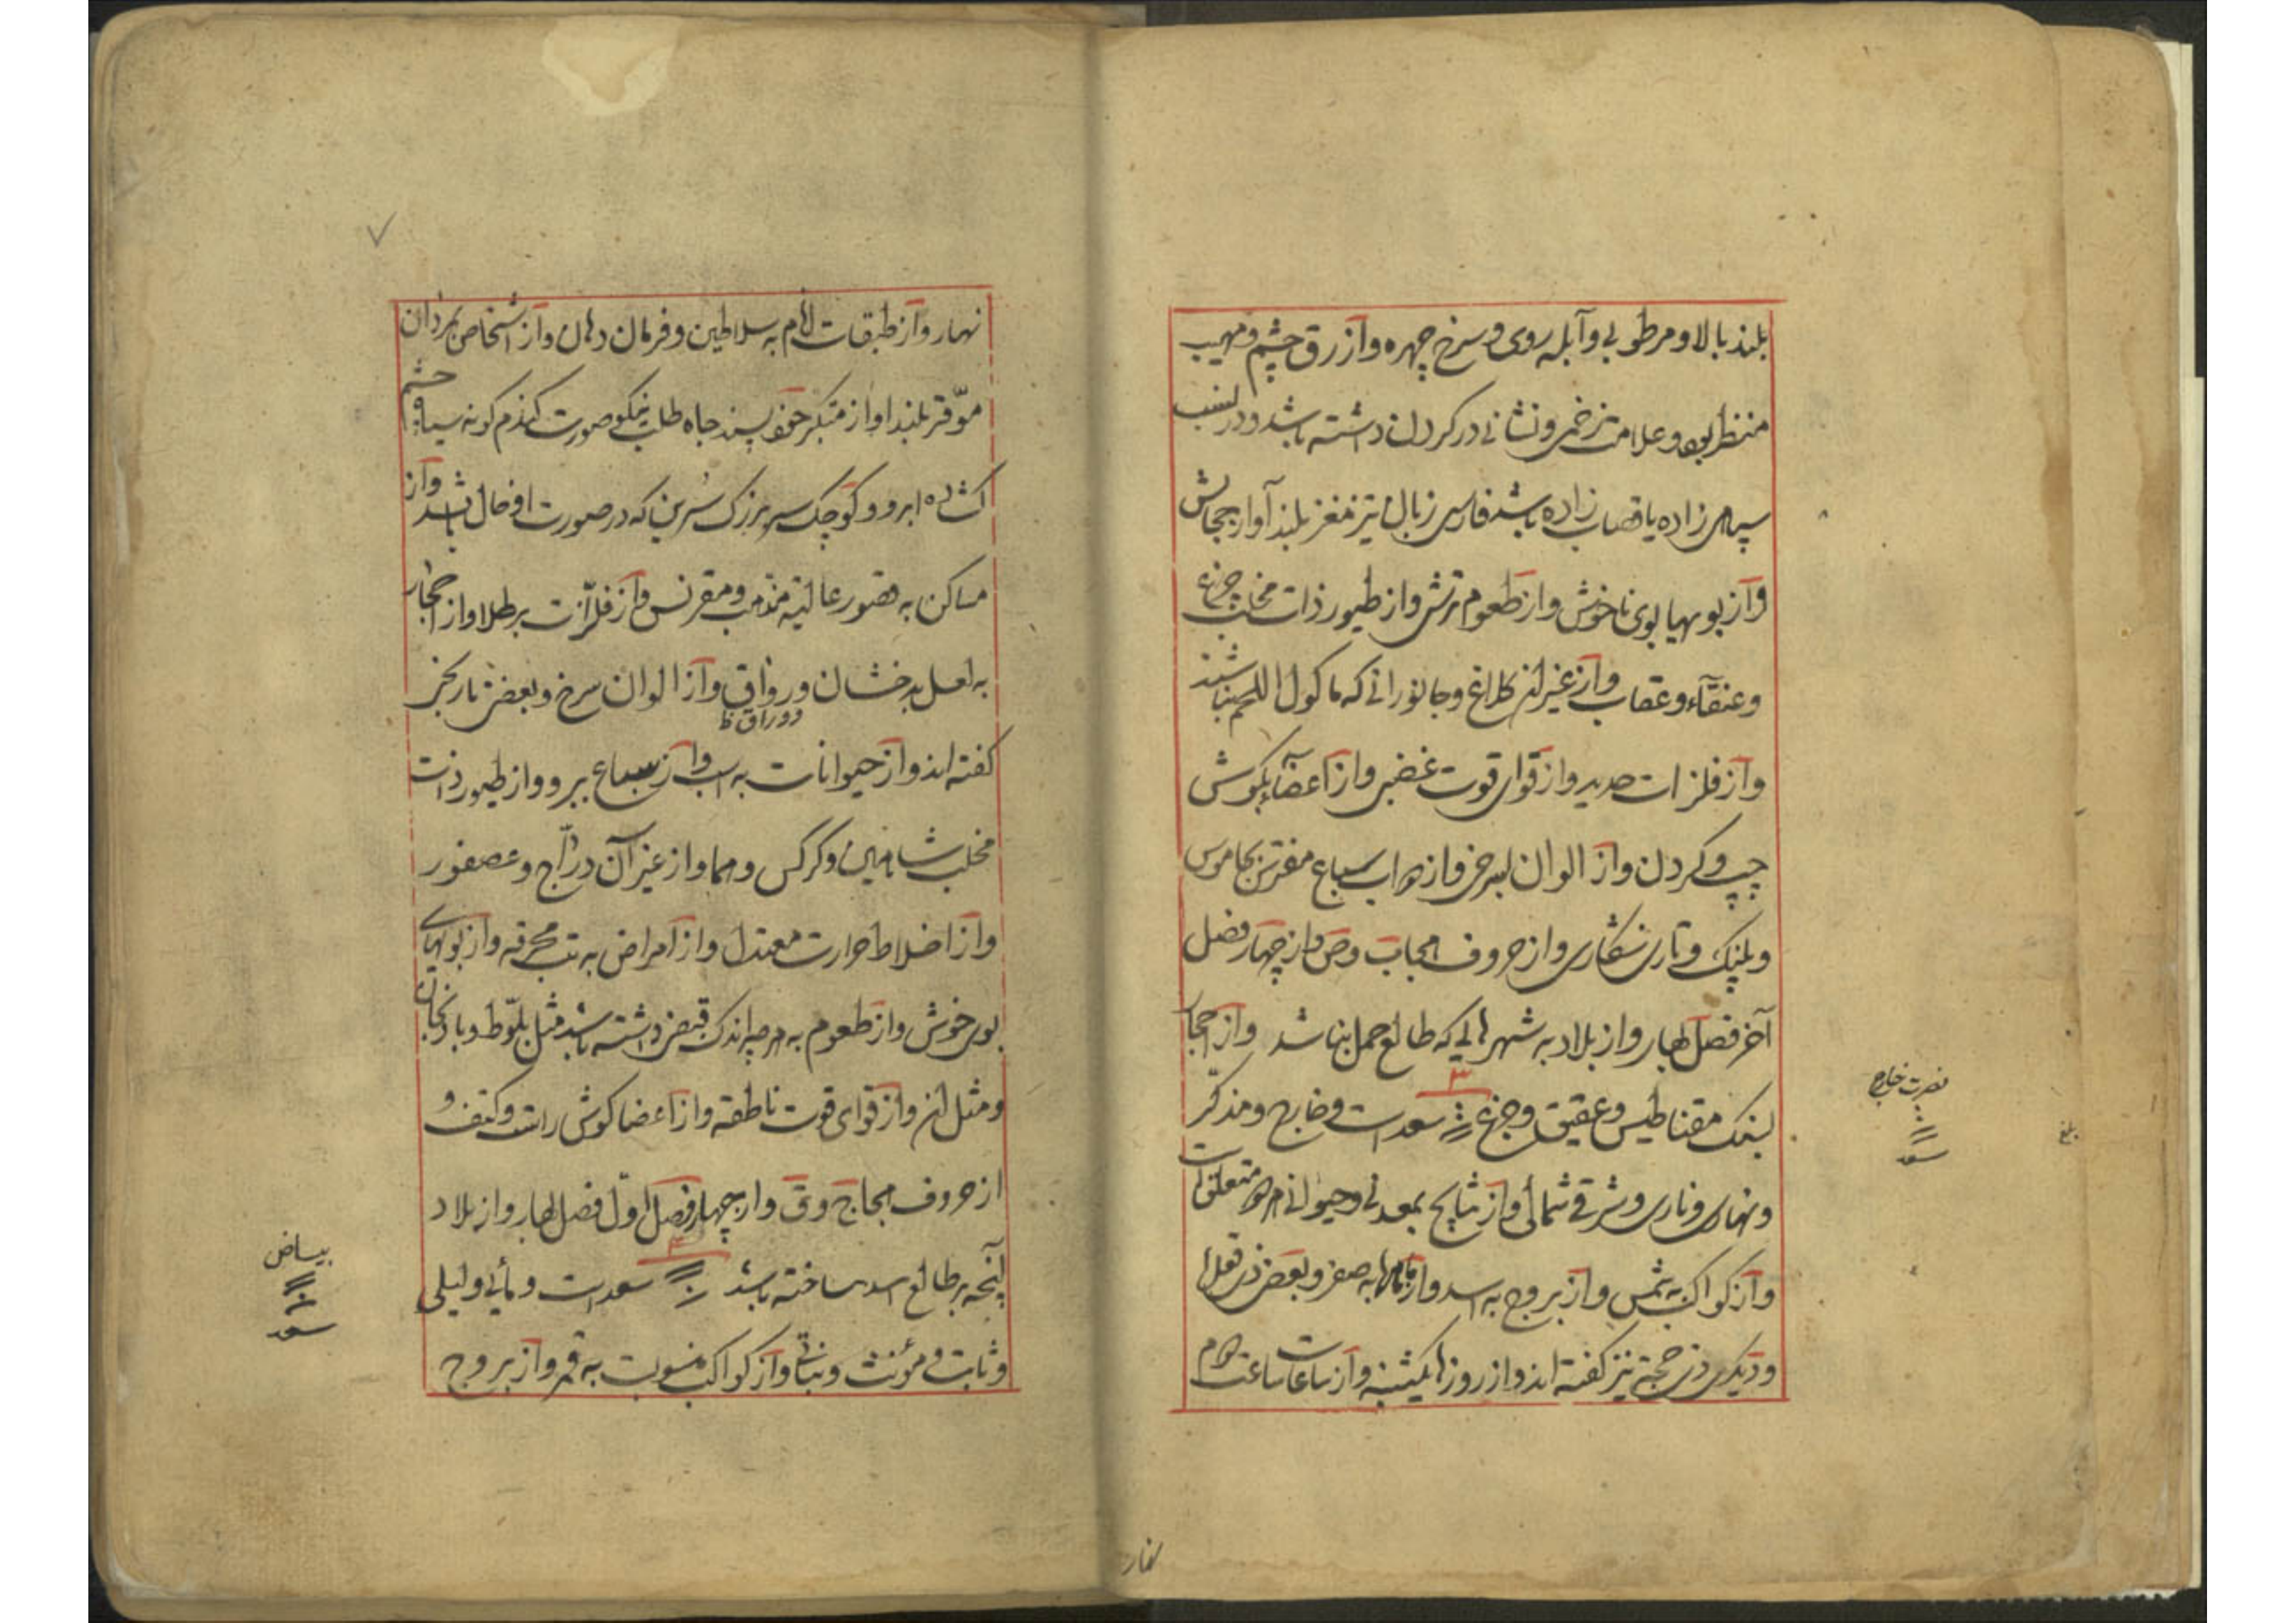 بلند بالا و مرطوبی و آبله روی و سرخ چهره و ازرق چشم و مهیب
منظر بود و علامت زخمی و نشانی در کردن داشته باشد و در نسب
سپاهی زاده یا قصاب زاده باشد فارسی زبان تیز مغز بلند آواز
و از بویها بوی ناخوش و از طعوم ترش و از طیور ذات مخلب چرغ
و عنقآء و عقاب و از غیر آن کلاغ و جانورانی که ماکول اللحم نباشند
و از فلزات حدید و از قوای قوت غضبی و از اعضاء بکوش
چپ و کردن و از الوان بسرخی و از دواب سباع مفترس جاموس
و پلنک و تازی شکاری و از حروف و از چهار فصل
آخر فصل بهار و از بلاد به شهرهایی که طالع حمل بنا شد و از احجار
بسنک مقناطیس و عقیق و جزع ۳ سعد است و خارج و مذکر
و نهاری و ناری و شرقی شمالی و از نتایج بمعدنی و حیوانی هر دو متعلق است
و از کواکب به شمس و از بروج به اسد و از ماهها به صفر و بعضی ذی قعده
و دیکری ذی حجه نیز کفته اند و از روزها یکشنبه و از ساعات ساعت دوم
نصرت خارج
سعد
نهار
نهار و از طبقات انام به سلاطین و فرمان دهان و از اشخاص بمردان
موقر بلند آواز متکبر خود پسند جاه طلب نیکو صورت کندم کونه سیاه چشم
کشاده ابرو و کوچک سر بزرک سرین که در صورت او خال باشد و از
مساکن به قصور عالیه مذهب و مقرنس و از فلزات بر طلا و از احجار
به لعل بدخشان و رواق و از الوان سرخ و بعضی نارنجی
دوراق ظ
کفته اند و از حیوانات به اسب و از سباع ببر و و از طیور ذات
مخلب شاهین و کرکس و هما و از غیر آن درّاج و عصفور
و از اخلاط حرارت معتدل و از امراض به تب محرقه و از بویهای
بوی خوش و از طعوم به هرچه اندک قبض داشته باشد مثل بلّوط و بادنجان
و مثل آن و از قوای قوت ناطقه و از اعضا کوش راست و کتف و
از حروف بحاج و ق و از چهار فصل اوّل فصل بهار و از بلاد
آنچه بر طالع اسد ساخته باشد ۴ سعد است و مائی و لیلی
و ثابت و مؤنث و نباتی و از کواکب منسوبست به قمر و از بروج
بیاض
سعد